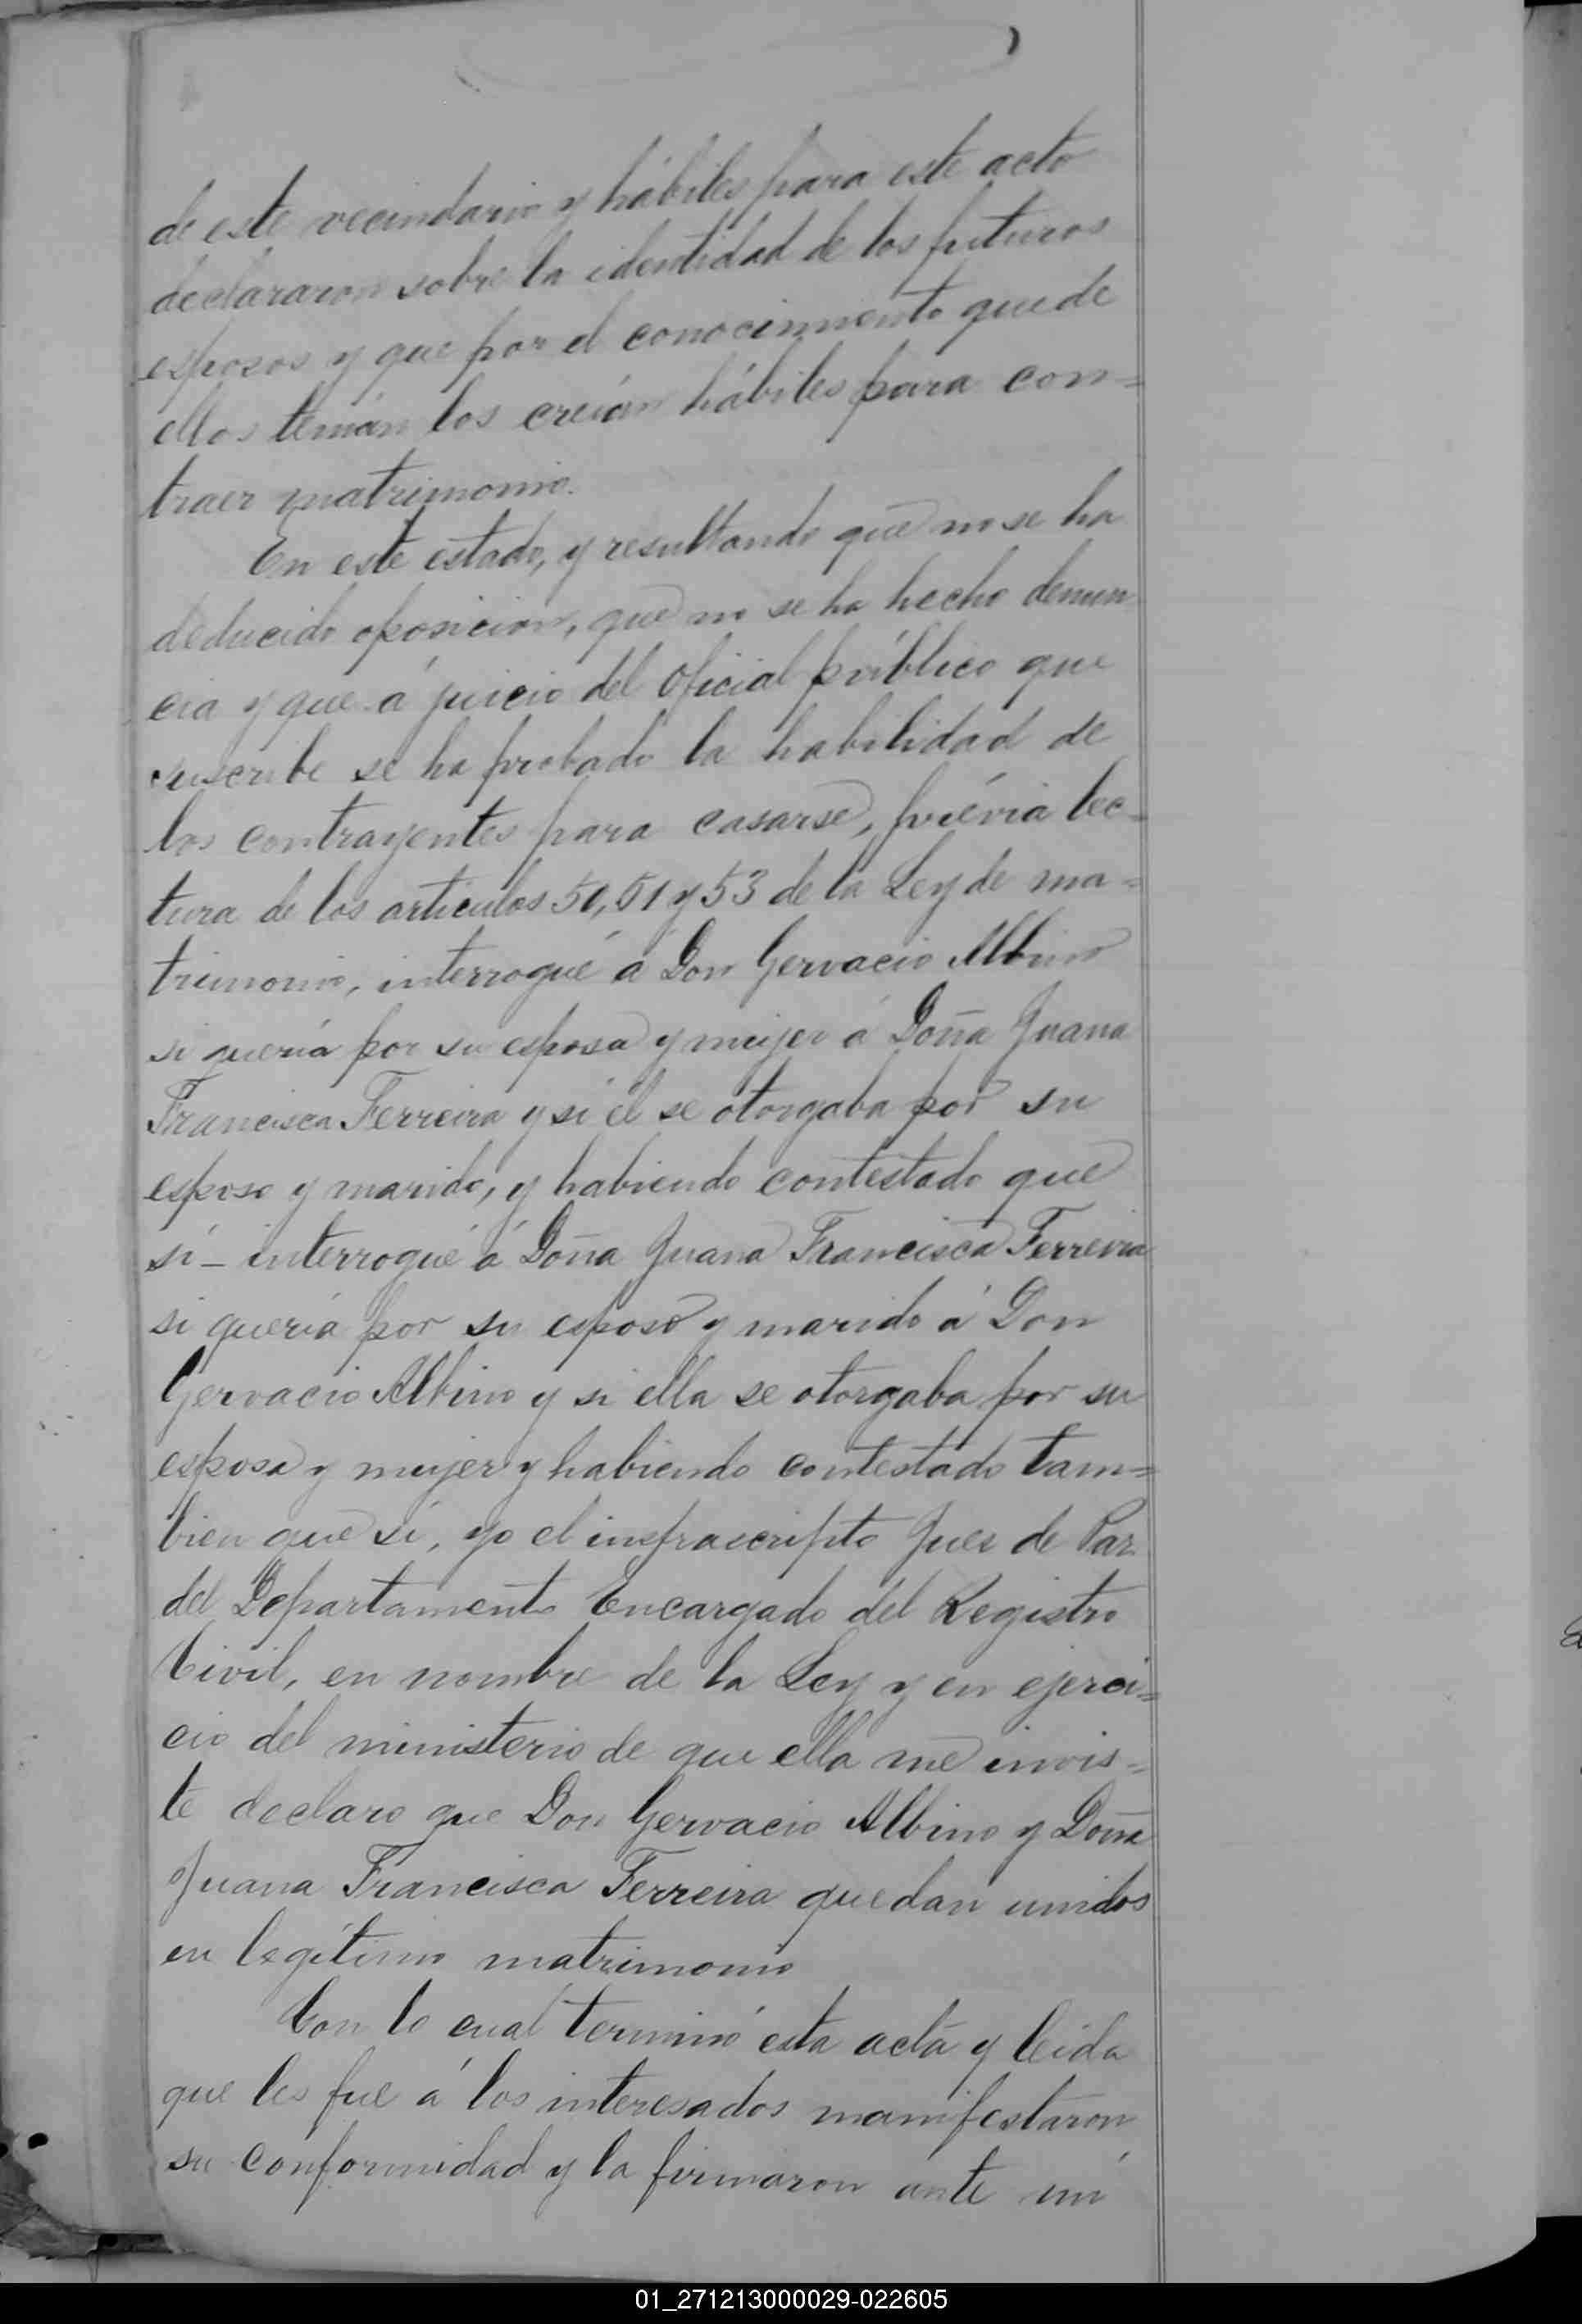 de este vecindario y hábiles para este acto
declararon sobre la identidad de los futuros
esposos y que por el conocimiento que de
ellos tenían los creían hábiles para con=
traer matrimonio.
En este estado, y resultando que no se ha
deducido oposicion, que no se ha hecho denun
cia y que á juicio del Oficial público que
suscribe se ha probado la habilidad de
los contrayentes para casarse, prévia lec-
tura de los articulos 50, 51 y 53 de la Ley de ma=
trimonio, interrogué á Don Gervacio Albino
si quería por su esposa y mujer á Doña Juana
Francisca Ferreira y si él se otorgaba por su
esposo y marido, y habiendo contestado que
sí – interrogué á Doña Juana Francisca Ferreira
si quería por su esposo y marido á Don
Gervacio Albino y si ella se otorgaba por su
esposa y mujer y habiendo contestado tam=
bien que sí, yo el infrascripto Juez de Paz
del Departamento Encargado del Registro
Civil, en nombre de la Ley y en ejerci=
cio del ministerio de que ella me invis=
te declaro que Don Gervacio Albino y Doña
Juana Francisca Ferreira quedan unidos
en legítimo matrimonio
Con lo cual terminó esta acta y leida
que les fue á los interesados manifestaron
su conformidad y la firmaron ante mí
01_271213000029-022605